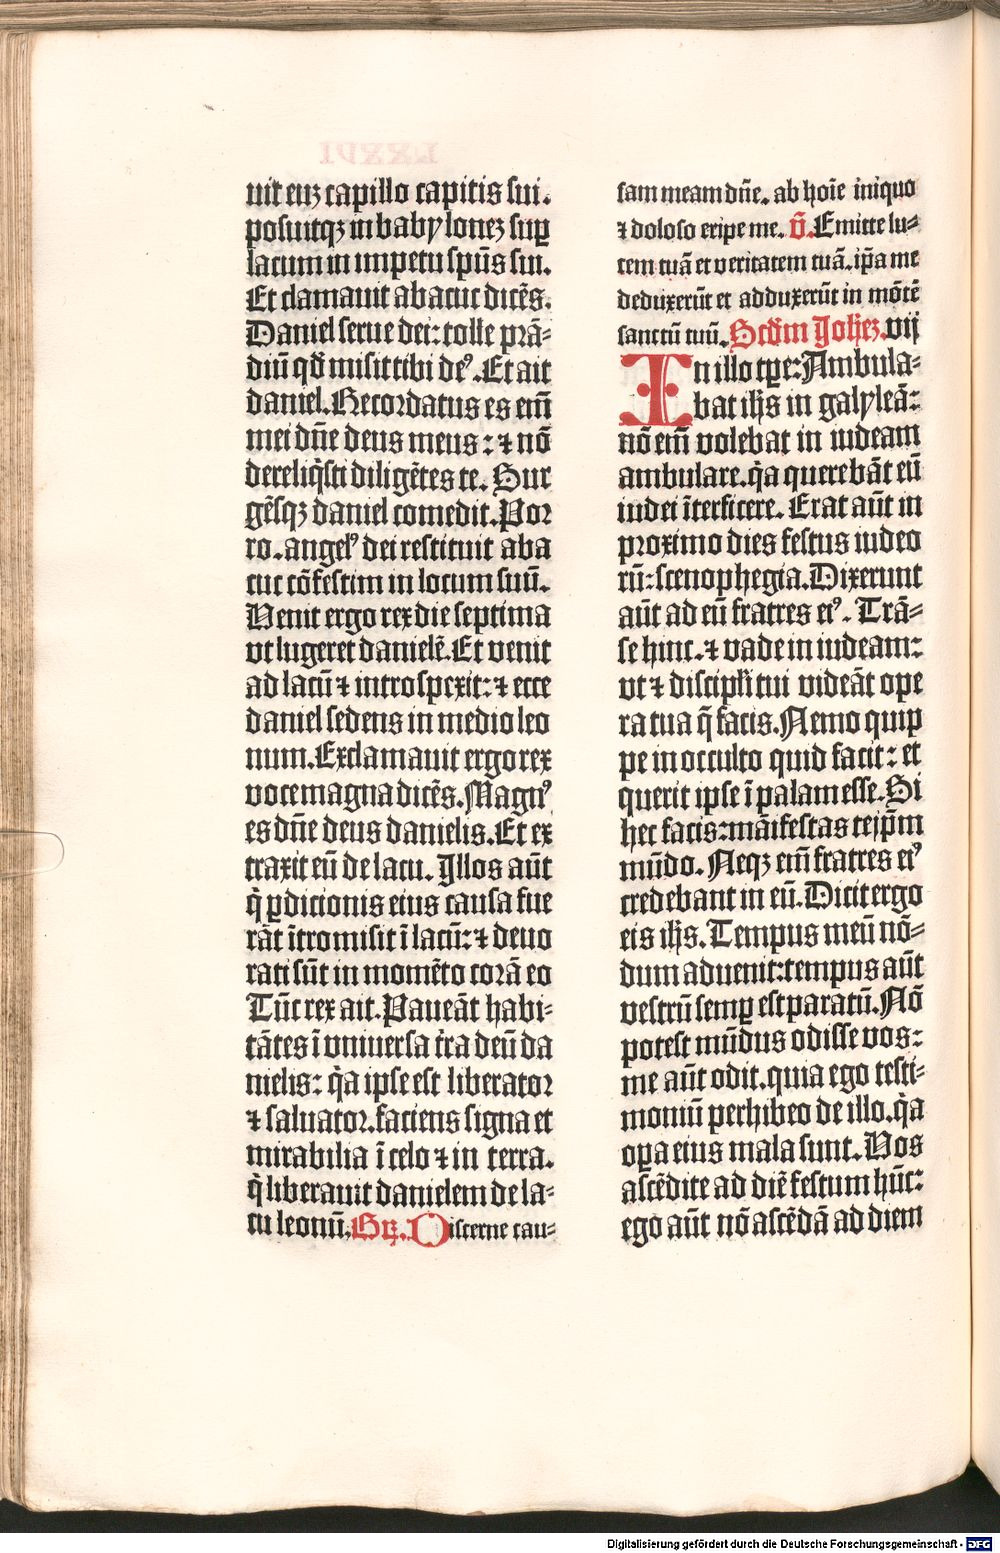 uit euʒ capillo capitis sui.
posuitqʒ in babyloneʒ suꝑ
lacum in impetu spūs sui.
Et clamauit abacuc dicēs.
Daniel serue dei: tolle prā⸗
diū qď misit tibi deꝰ. Et ait
daniel. Recordatus es eīm
mei dn̄e deus meus: ⁊ nō
dereliq̇sti diligētes te. Sur
gēsqʒ daniel comedit. Por
ro. angelꝰ dei restituit aba
cuc cōfestim in locum suū.
Uenit ergo rex die septima
vt lugeret danielē. Et venit
ad lacū ⁊ introspexit: ⁊ ecce
daniel sedens in medio leo
num. Exclamauit ergo rex
voce magna dicēs. Magnꝰ
es dn̄e deus danielis. Et ex
traxit eū de lacu. Illos aūt
q̇ ꝑdicionis eius causa fue
rāt ītromisit ī lacū: ⁊ deuo
rati sūt in momēto corā eo
Tūc rex ait. Paueāt habi⸗
tātes ī vniuersa t̄ra deū da
nielis: q̇a ipse est liberator
⁊ saluator. faciens signa et
mirabilia ī celo ⁊ in terra.
q̇ liberauit danielem de la⸗
cu leonū. Gr̄. Discerne cau⸗
sam meam dn̄e. ab hoīe iniquo
⁊ doloso eripe me. v̄. Emitte lu⸗
cem tuā et veritatem tuā. ip̄a me
deduxerūt et adduxerūt in mōtē
sanctū tuū. Scďm Joħeʒ. vij
In illo tꝑe: Ambula⸗
bat ih̄s in galyleā:
nō eīm volebat in iudeam
ambulare. q̇a querebāt eū
iudei īterficere. Erat aūt in
proximo dies festus iudeo
rū: scenophegia. Dixerunt
aūt ad eū fratres eiꝰ. Trā⸗
se hinc. ⁊ vade in iudeam:
vt ⁊ discipľi tui videāt ope
ra tua q̄ facis. Nemo quip
pe in occulto quid facit: et
querit ipse ī palam esse. Si
hec facis: māifestas teip̄m
mūdo. Neqʒ eīm fratres eiꝰ
credebant in eū. Dicit ergo
eis ih̄s. Tempus meū nō⸗
dum aduenit: tempus aūt
vestrū semꝑ est paratū. Nō
potest mūdus odisse vos:
me aūt odit. quia ego testi⸗
moniū perhibeo de illo. q̇a
oꝑa eius mala sunt. Uos
ascēdite ad diē festum hūc:
ego aūt nō ascēdā ad diem
Digitalisierung gefördert durch die Deutsche Forschungsgemeinschaft - DFG